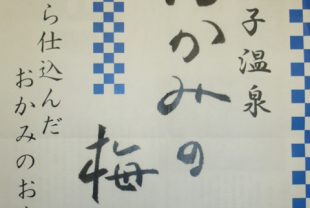 子温泉
おかみの
梅
ら仕込んだ
おかみのお